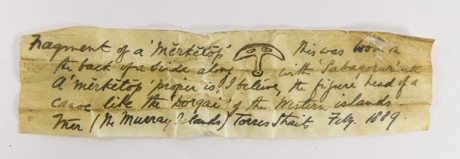 Fragment of a 'Mĕrkĕtŏp' This was worn on
the back of a bride along with 'Sabagorar' etc
A 'mĕrkĕtŏp' proper is, I believe, the figure head of a
canoe like the Dorgai of the Western islands.
Mer (The Murray Islands) Torres Strait Feby. 1889.